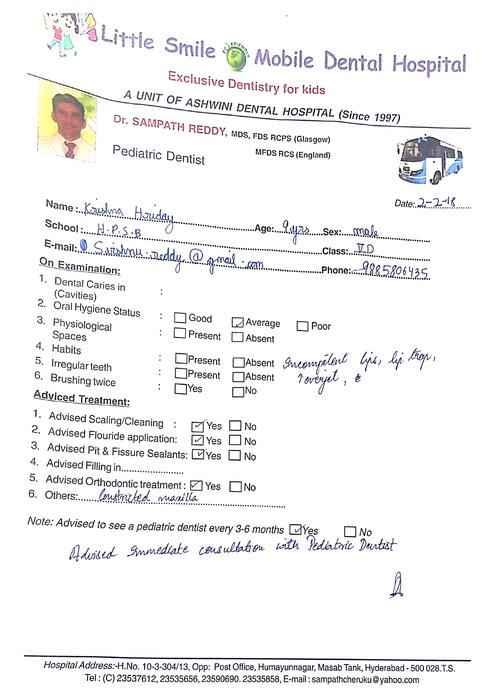 Little Smile Mobile Dental Hospital
Exclusive Dentistry for kids
A UNIT OF ASHWINI DENTAL HOSPITAL (Since 1997)
Dr. SAMPATH REDDY, MDS, FDS RCPS (Glasgow)
MFDS RCS (England)
Pediatric Dentist
Date: 2-2-18
Name: Krishna Hriday Age: 9yrs Sex: male
School: H.P.S.B Class: V D
E-mail: Sirshnu.reddy@gmail.com Phone: 9885806435
On Examination:
1. Dental Caries in (Cavities) :
2. Oral Hygiene Status : Good ☑ Average Poor
3. Physiological Spaces : Present Absent
4. Habits : Present Absent Incompetent lips, lip trap,
5. Irregular teeth : Present Absent ↑overjet,
6. Brushing twice : Yes No
Adviced Treatment:
1. Advised Scaling/Cleaning : ☑ Yes No
2. Advised Flouride application: ☑ Yes No
3. Advised Pit & Fissure Sealants: ☑ Yes No
4. Advised Filling in...............
5. Advised Orthodontic treatment: ☑ Yes No
6. Others: Constricted maxilla
Note: Advised to see a pediatric dentist every 3-6 months ☑ Yes No
Advised immediate consultation with Pediatric Dentist
Hospital Address:-H.No. 10-3-304/13, Opp: Post Office, Humayunnagar, Masab Tank, Hyderabad - 500 028.T.S.
Tel : (C) 23537612, 23535656, 23590690. 23535858, E-mail : sampathcheruku@yahoo.com